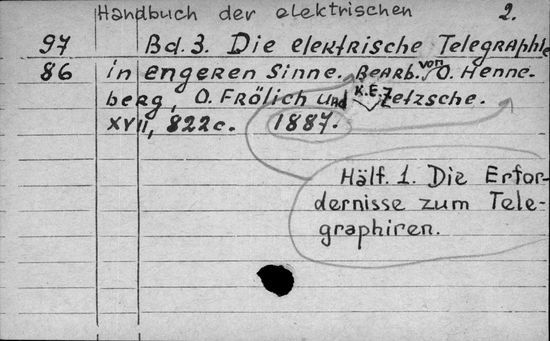 Handbuch der elektrischen 2.
97 Bd. 3. Die elektrische Telegraphie
86 in engeren Sinne. Bearb. von O. Henne-
berg, O. Frölich und K.E. Zetzsche.
XVII, 822c. 1887.
Hälf. 1. Die Erfor-
dernisse zum Tele-
graphiren.